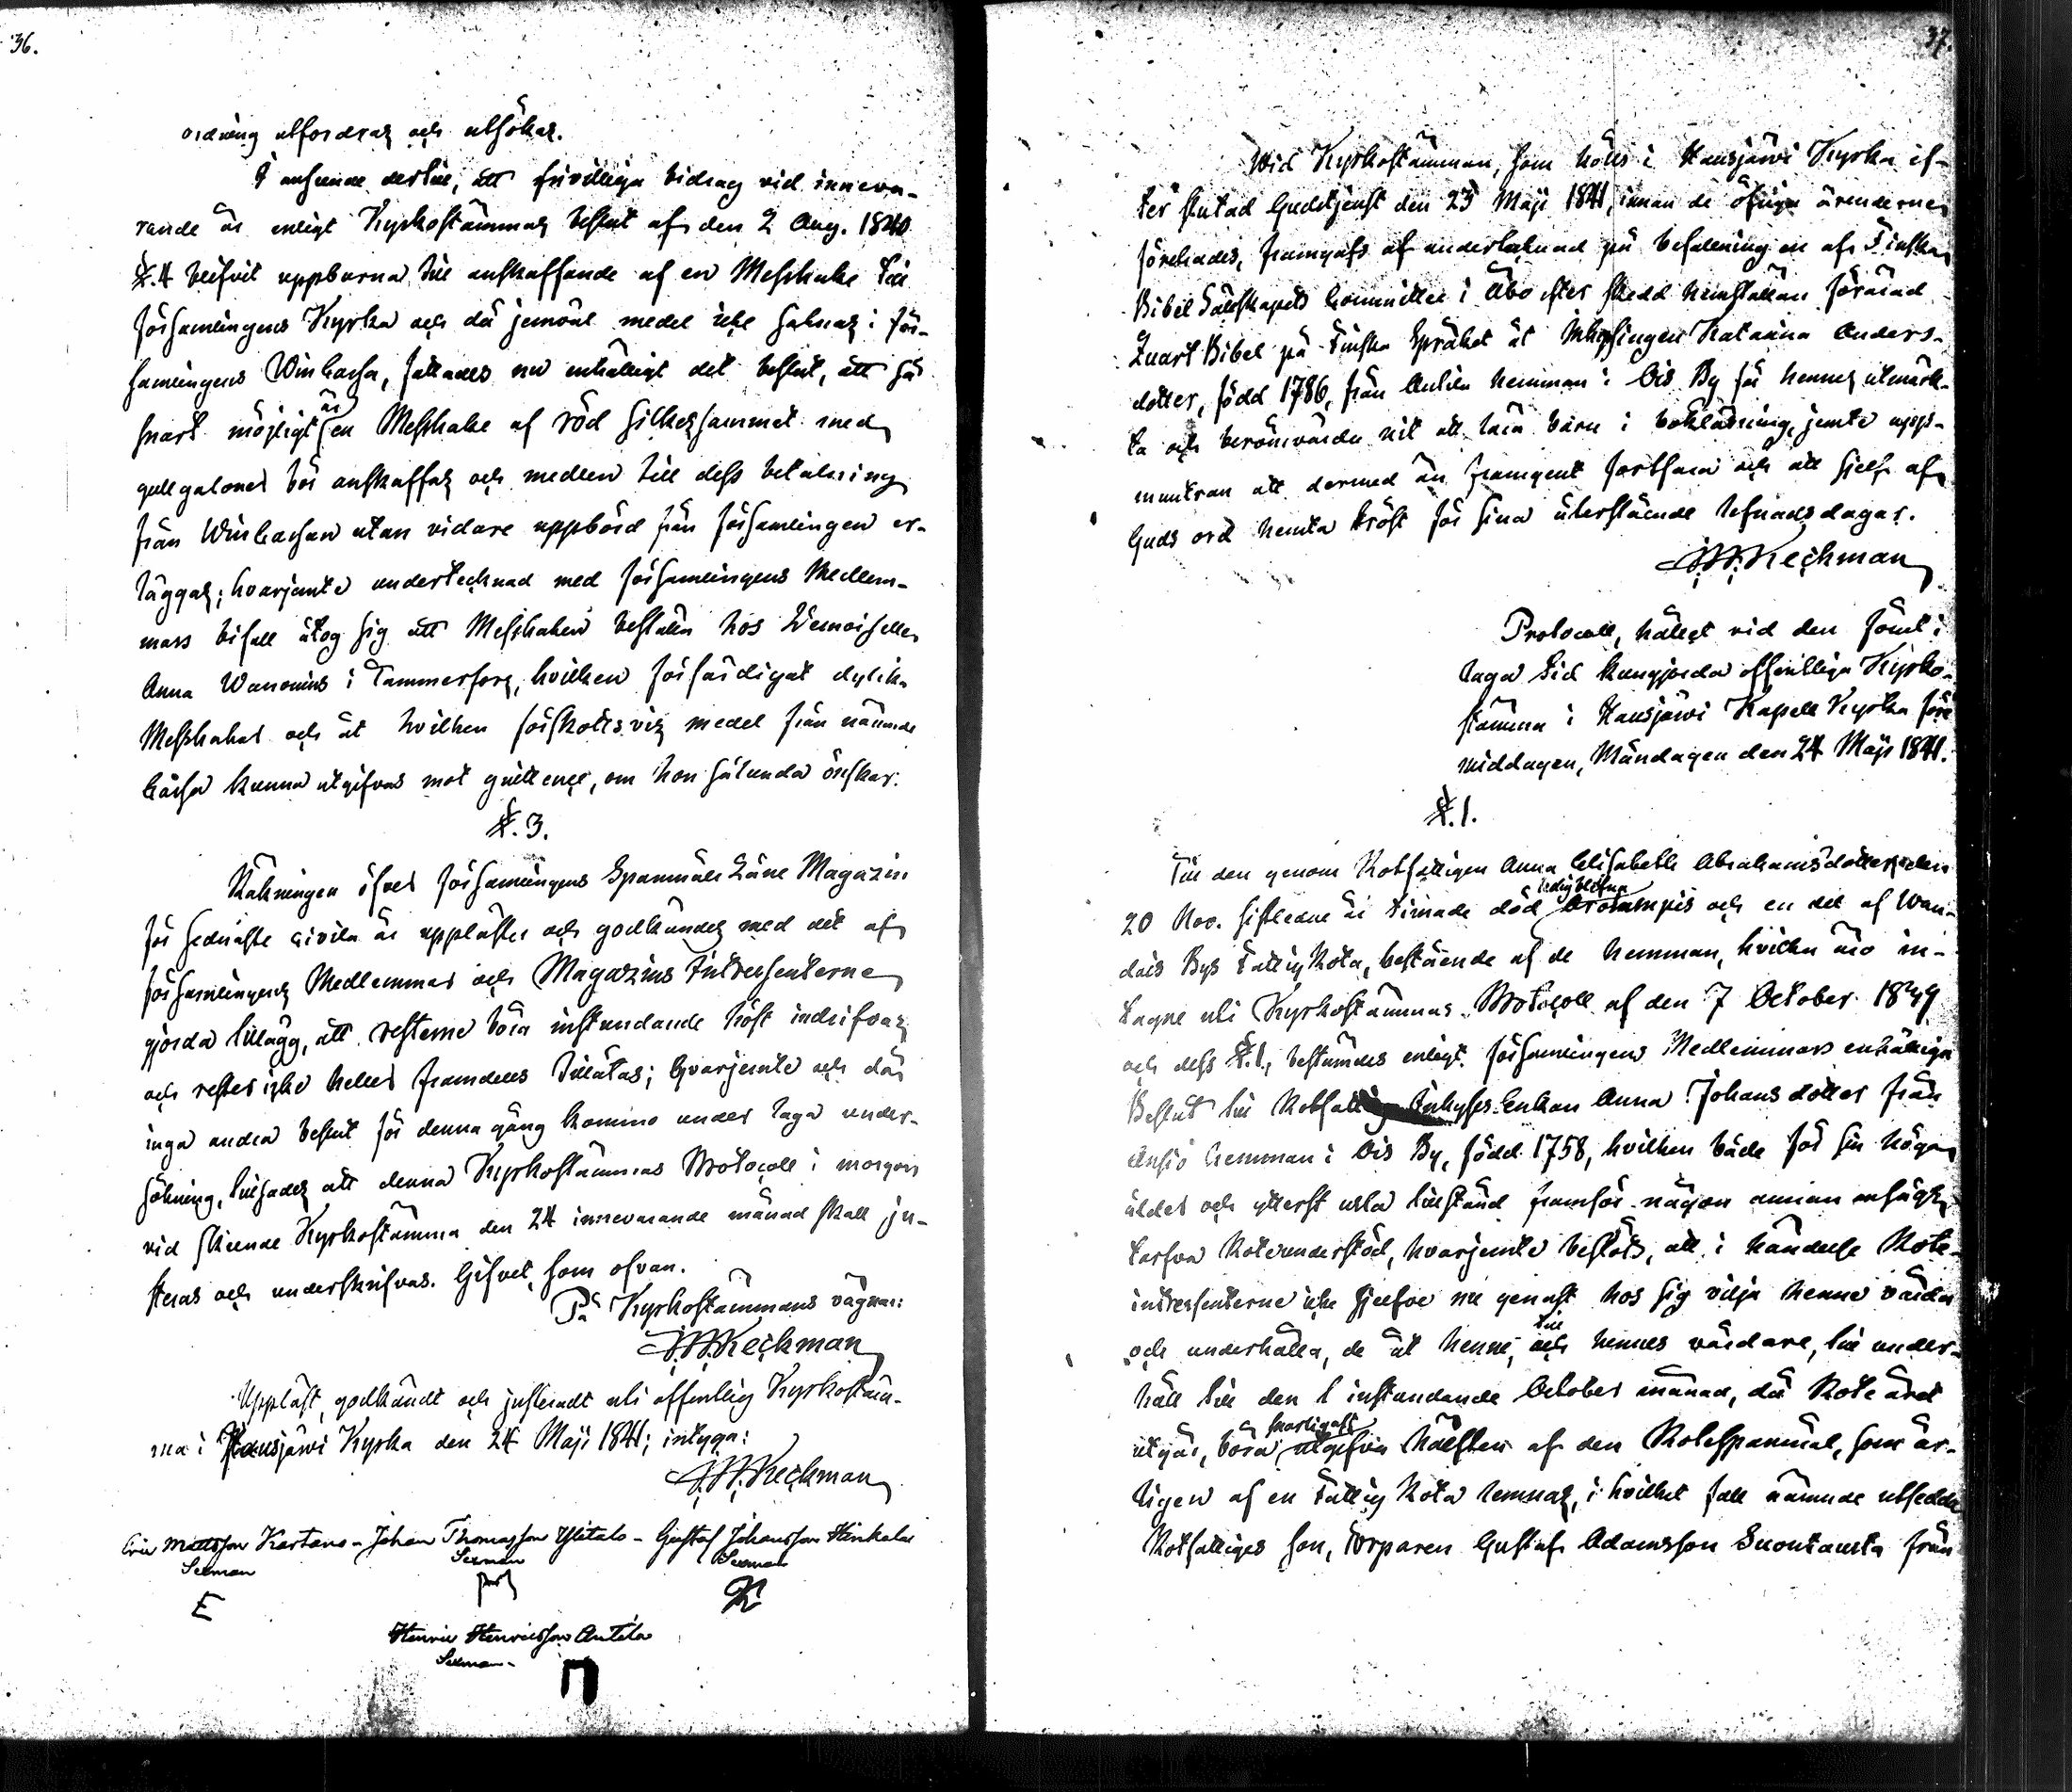 36.
ordning utfordras och utsökas.
I anseende dertill, att frivilliga bidrag vid inneva-
rande år enligt Kyrkostämmas beslut af den 2 Aug. 1840
§.4 blifvit uppburna till anskaffande af en Messhake till
församlingens Kyrka och då jemväl medel icke saknas i för-
samlingens Wincassa, fattades nu enhälligt det beslut, att så
snart möjligt är en Messhake af röd silkessammet med
gullgaloner bör anskaffas och medlen till dess betalning
från Wincassan utan vidare uppbörd från församlingen er-
läggas; hvarjemte undertecknad med församlingens Medlem-
mars bifall åtog sig att Messhaken beställa hos Demoiselle
Anna Wanonius i Tammerfors, hvilken förfärdigat dylika
Messhakar och åt hvilken förskottsvis medel från nämnde
Cassa kunna utgifvas mot quittence, om hon sålunda önskar.
§.3.
Räkningen öfver församlingens Spannmåls Låne Magazin
för sednaste civila år upplästes och godkändes med det af
församlingens Medlemmar och Magazins Intressenterne
gjorda tillägg, att resterne böra instundande höst indrifvas
och rester icke heller framdeles tillåtas; hvarjemte och där
inga andra beslut för denna gång kommo under laga under-
sökning, tillsades att denna Kyrkostämmas Protocoll i morgon
vid skeende Kyrkostämma den 24 innevarande månad skall ju-
steras och underskrifvas. Gifvet, som ofvan.
På Kyrkostämmans vägnar:
Keckman
Uppläst, godkändt och justeradt uti offentlig Kyrkostäm-
ma i Hausjärvi Kyrka den 24 Maji 1841; intyga:
Keckman
Eric Mattsson Kartano - Johan Thomasson Ylitalo - Gustaf Johansson Hinkala
Sexman Sexman Sexman
E K
Henric Henricsson Antila
Sexman -
37.
Wid Kyrkostämman, som hölls i Hausjärvi Kyrka ef-
ter slutad Gudstjenst den 23 Maji 1841, innan de öfriga ärenderne
förehades, framgafs af undertecknad på befallning en af Finska
Bibel Sällskapets Committee i Åbo efter skedd hemställan förärad
Quart Bibel på Finska Språket åt Inhysingen Katarina Anders-
dotter, född 1786, från Antila hemman i Ois By för hennes utmärk-
ta och berömvärda nit att lära barn i bokläsning, jemte upp-
muntran att dermed än framgent fortfara och att sjelf af
Guds ord hemta tröst för sina återstående lefnadsdagar.
Keckman
Protocoll, hållet vid den förut i
laga tid kungjorda offentliga Kyrko-
stämma i Hausjärvi Kapell Kyrka före
middagen, Måndagen den 24 Maji 1841.
§.1.
Till den genom Rotfattigen Anna Elisabeth Abrahamsdotters den
20 Nov. sistledne år timade död ledigblefna och en del af Wan-
dais Bys Fattig Rota, bestående af de hemman, hvilka äro in-
tagne uti Kyrkostämmas Protocoll af den 7 October
och dess §.1, bestämdes enligt församlingens Medlemmars enhälliga
Beslut till Rotfattig Inhyses Enkan Anna Johansdotter från
Ansio hemman i Ois By, född 1758, hvilken både för sin höga
ålder och ytterst usla tillstånd framför någon annan ansågs
tarfva Roteunderstöd, hvarjemte beslöts, att i händelse Rote-
intressenterne icke sjelfve nu genast hos sig vilja henne vårda
och underhålla, de åt henne, och till hennes vårdare, till under-
håll till den 1 instundande October månad, då Rote året
utgår, böra snarligast utgifva hälften af den Rotespannmål, som år-
ligen af en Fattig Rota lemnas, i hvilket fall nämnde utfedda
Rotfattiges son, Torparen Gustaf Adamsson Suontausta från